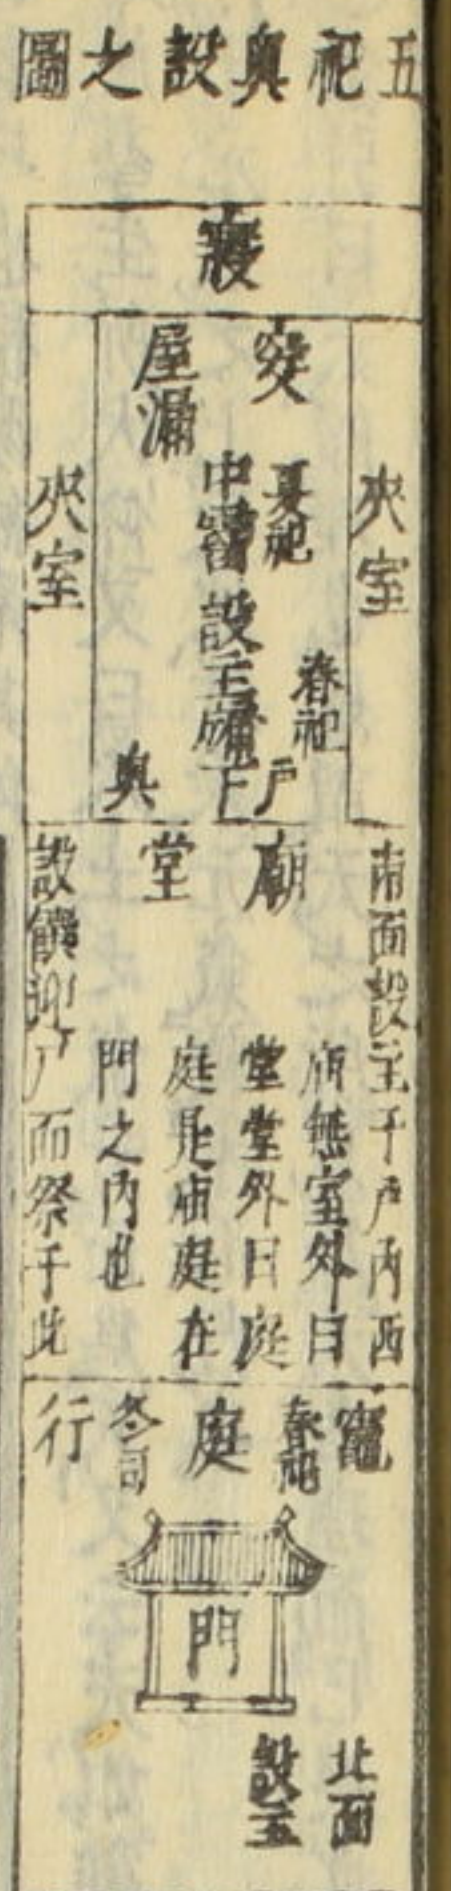 五祀奧設之圖
寢
夾室
突
夏祀
中霤設主廟下
屋漏
春祀
戶
奧
夾室
廟堂
南面設主于戶內西
廟無室外曰
堂堂外曰庭
庭是廟庭在
門之內也
設饌迎尸而祭于此
竈
春祀
庭
冬司
行
門
北面
設主